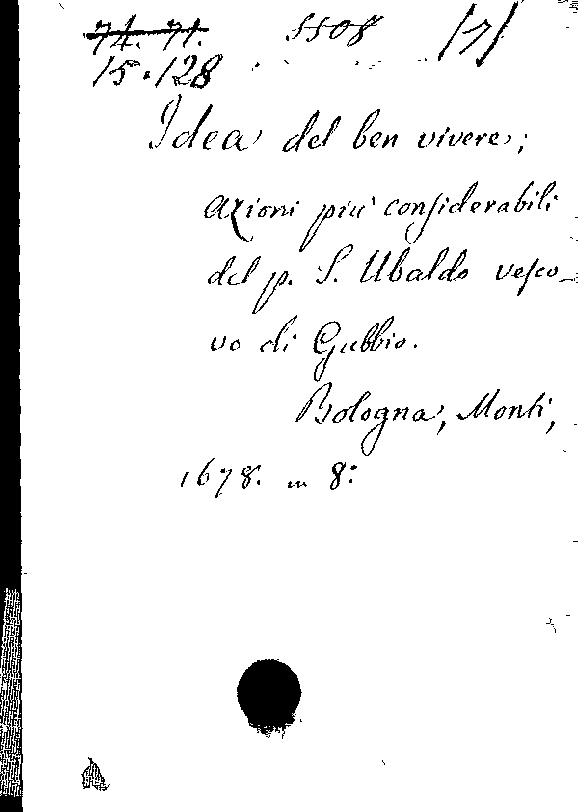 74. 71. 5508 171
15.128
Idea del ben vivere;
azioni più considerabili
del p. S. Ubaldo vesco-
vo di Gubbio.
Bologna, Monti,
1678. in 8°.